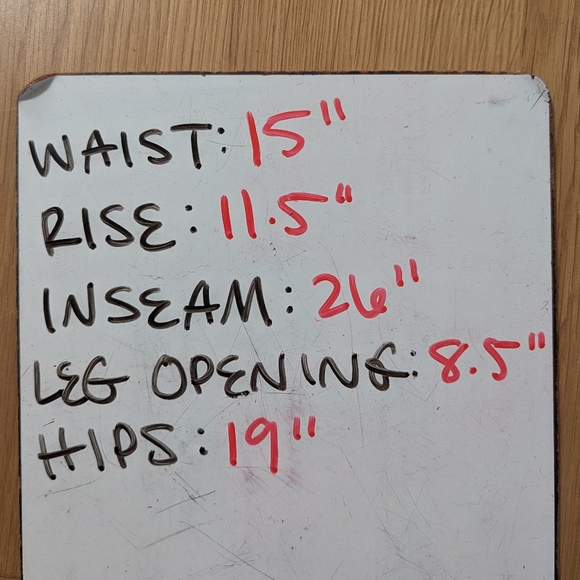 WAIST: 15"
RISE: 11.5"
INSEAM: 26"
LEG OPENING: 8.5"
HIPS: 19"